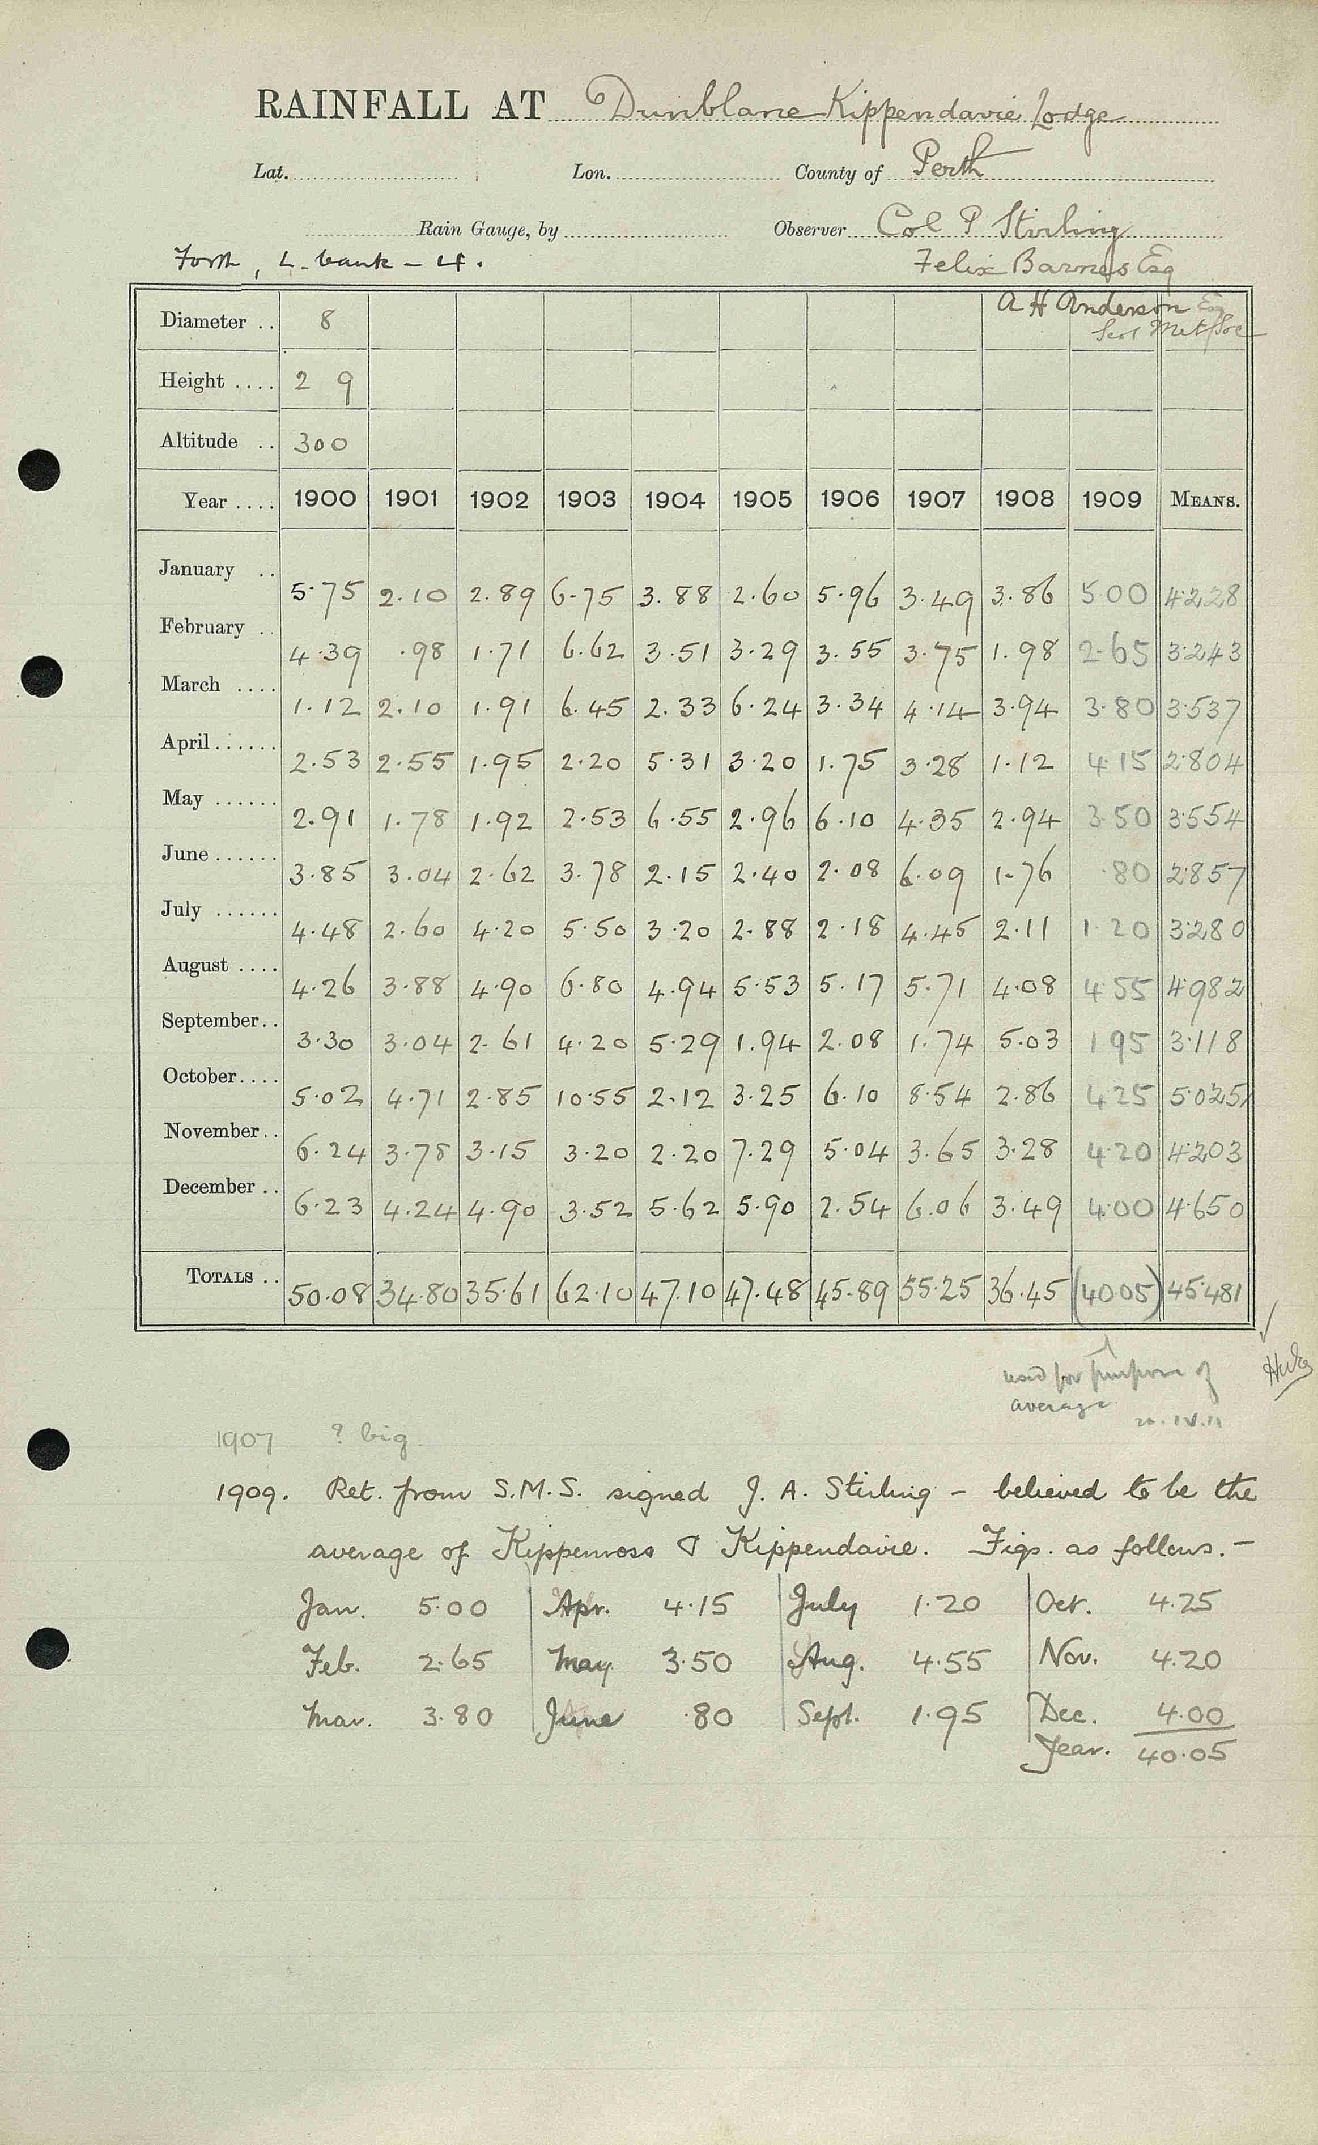 RAINFALL AT Dunblane Kippendavie Lodge
Lat. Lon. County of Perth
Rain Gauge, by Observer Col P Stirling
Forth, L. bank - 4. Felix Barnes Esq
A H Anderson Esq
Scot Met Soc
Diameter .. 8
Height .... 2 9
Altitude .. 300
Year .... 1900 1901 1902 1903 1904 1905 1906 1907 1908 1909 MEANS.
January .. 5.75 2.10 2.89 6.75 3.88 2.60 5.96 3.49 3.86 5.00 4.228
February .. 4.39 .98 1.71 6.62 3.51 3.29 3.55 3.75 1.98 2.65 3.243
March .... 1.12 2.10 1.91 6.45 2.33 6.24 3.34 4.14 3.94 3.80 3.537
April ...... 2.53 2.55 1.95 2.20 5.31 3.20 1.75 3.28 1.12 4.15 2.804
May ...... 2.91 1.78 1.92 2.53 6.55 2.96 6.10 4.35 2.94 3.50 3.554
June ...... 3.85 3.04 2.62 3.78 2.15 2.40 2.08 6.09 1.76 .80 2.857
July ...... 4.48 2.60 4.20 5.50 3.20 2.88 2.18 4.45 2.11 1.20 3.280
August .... 4.26 3.88 4.90 6.80 4.94 5.53 5.17 5.71 4.08 4.55 4.982
September .. 3.30 3.04 2.61 4.20 5.29 1.94 2.08 1.74 5.03 1.95 3.118
October .... 5.02 4.71 2.85 10.55 2.12 3.25 6.10 8.54 2.86 4.25 5.025
November .. 6.24 3.78 3.15 3.20 2.20 7.29 5.04 3.65 3.28 4.20 4.203
December .. 6.23 4.24 4.90 3.52 5.62 5.90 2.54 6.06 3.49 4.00 4.650
TOTALS .. 50.08 34.80 35.61 62.10 47.10 47.48 45.89 55.25 36.45 (40.05) 45.481
used for purpose of
average
20.IV.11
1907 ? big
1909. Ret. from S.M.S. signed J. A. Stirling - believed to be the
average of Kippenross & Kippendavie. Figs. as follows. -
Jan. 5.00 Apr. 4.15 July 1.20 Oct. 4.25
Feb. 2.65 May 3.50 Aug. 4.55 Nov. 4.20
Mar. 3.80 June .80 Sept. 1.95 Dec. 4.00
Year. 40.05